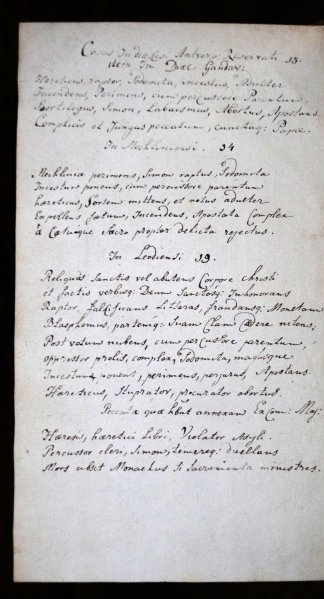 Casus In Dioecesi Antverp: Reservati 13
item In Diaec Gandav:
Haereticus, raptor, Sodomita, incestus, adulter
Incendens, Perimens, cum percussore Parentum
Sortilegus, Simon, Abortus, Apostans
Complicis et Jungus peccatum, cunctaq: Papae
In Mechliniensi. 14
Mechlinia perimens, Simon raptus, Sodomita
Incestum ponens, cum percussore parentum
haereticus, Sortem mittens, et notus adulter
Expellens foetum, Incendens, Apostata Complex
à Caetuque Sacro propter delicta rejectus.
In Leodiensi 19.
Reliquiis Sanctis vel abutens Corpore Christi
et factis verbisq: Deum Sanctosq: Inhonorans
Raptor, falsificans Litteras, fraudansq: Monetam
Blasphemus, partemq: suam Clam edere nitens,
Post votum nubens, cum percussore parentum,
oppressor prolis, complex, Sodomita, magusque
Incestum ponens, perimens, perjurus, Apostans.
Haereticus, Stuprator, procurator abortus.
Peccata quae hbnt annexam ExCom: Maj:
Haeresis, haeretici Libri, Violator Asyli.
Percussor cleri, Simon, temereq: duellans
Mors abit Monachus si Sacramenta ministres.